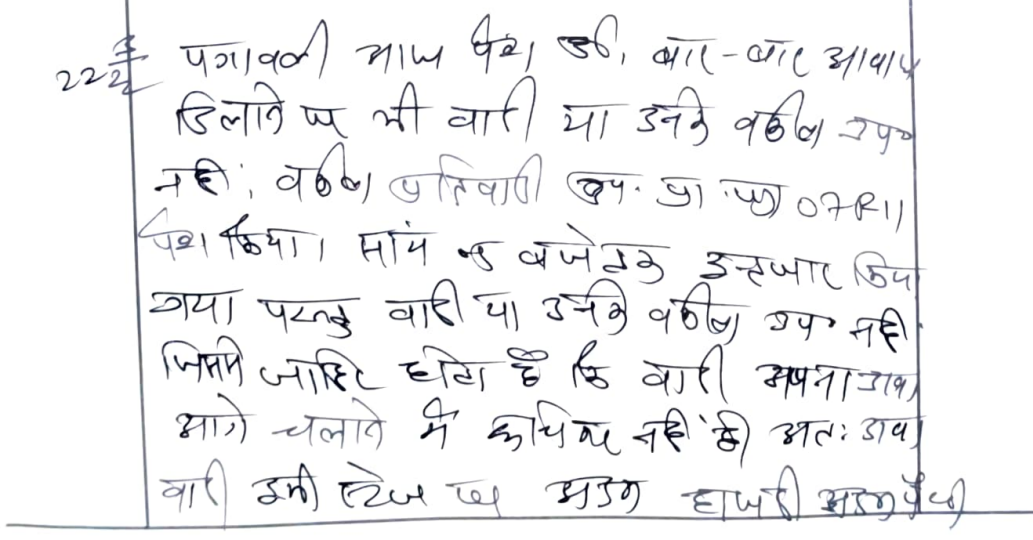 22 3/22 पत्रावली आज पेश हुई, बार-बार आवाज
दिलाने पर भी वादी या उनके वकील उप०
नही, वकील प्रतिवादी उप. प्रा. पत्र 07R11
पेश किया। सांय 5 बजे तक इन्तजार किया
गया परन्तु वादी या उनके वकील उप० नही
जिससे जाहिर होता है कि वादी अपना दावा
आगे चलाने में नही है अतः दावा
वादी इसी स्टेज पर अदम हाजरी अदम पैरवी